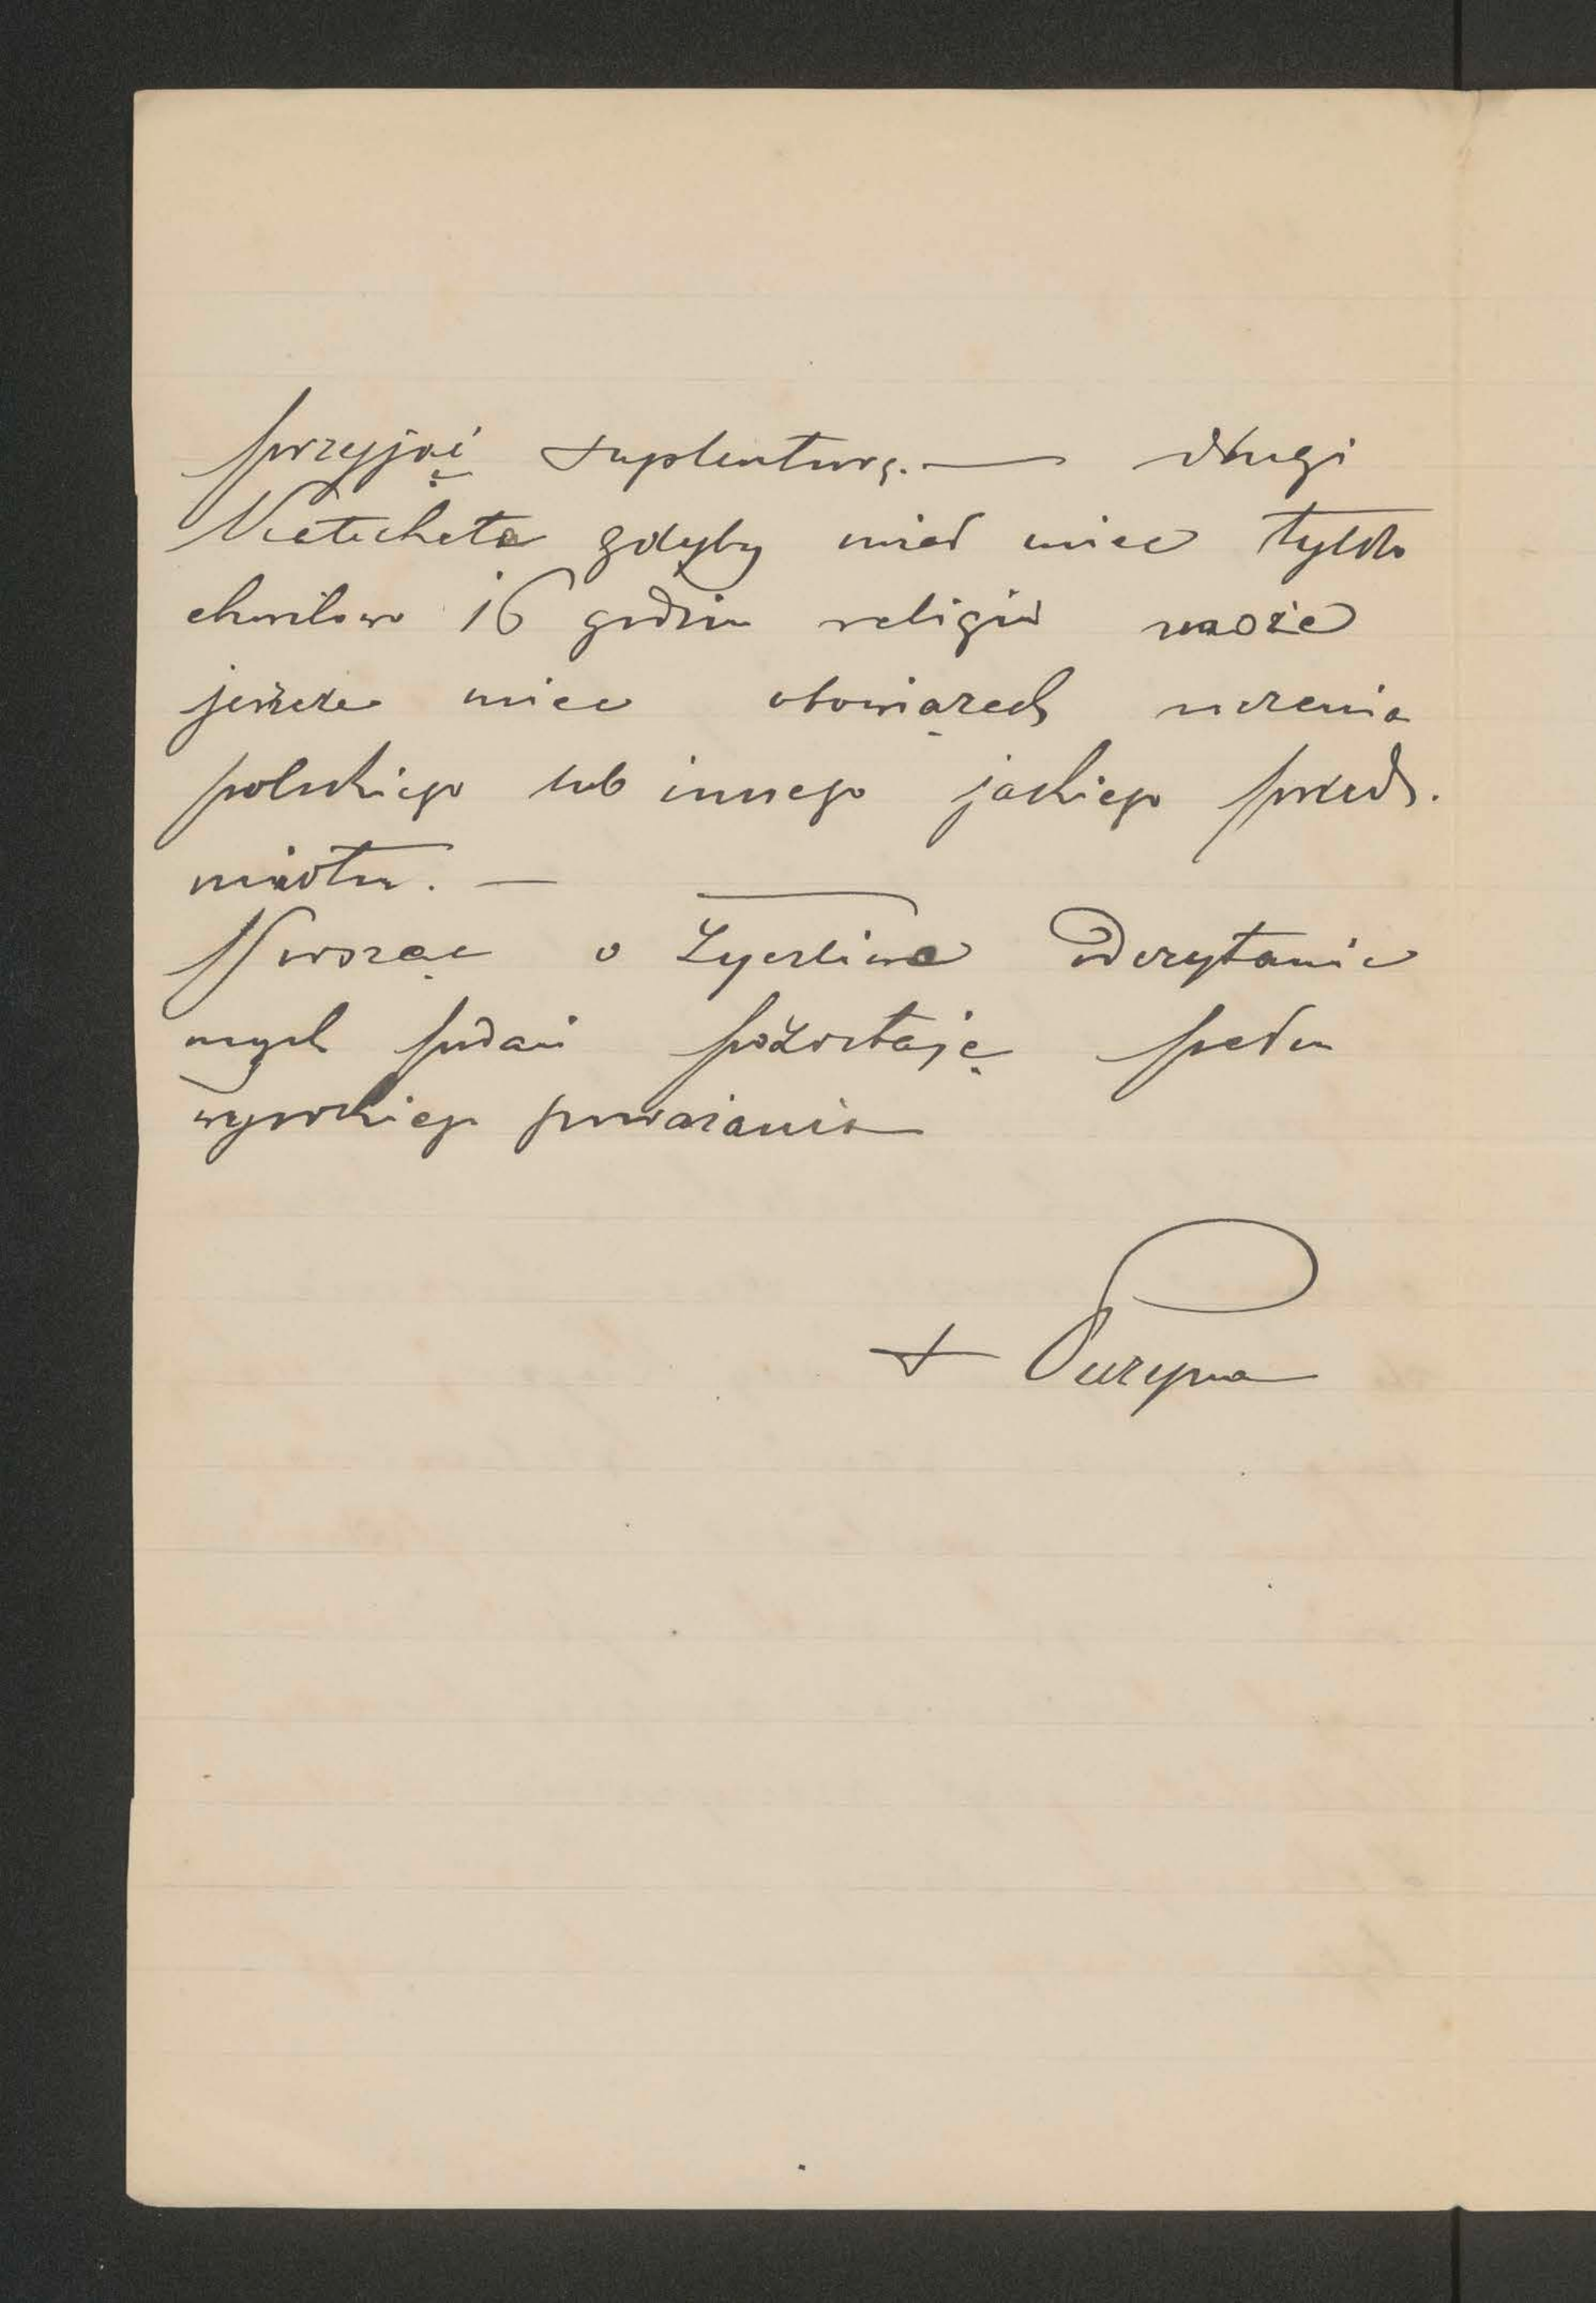 przyjąć suplenturę. — drugi
Katecheta gdyby miał mieć tylko
chwilowo 16 godzin religii może
jeszcze mieć obowiązek uczenia
polskiego lub innego jakiego przed-
miotu. —
o życzliwe
mych podań pozostaję pełen
wysokiego poważania
+ Puzyna